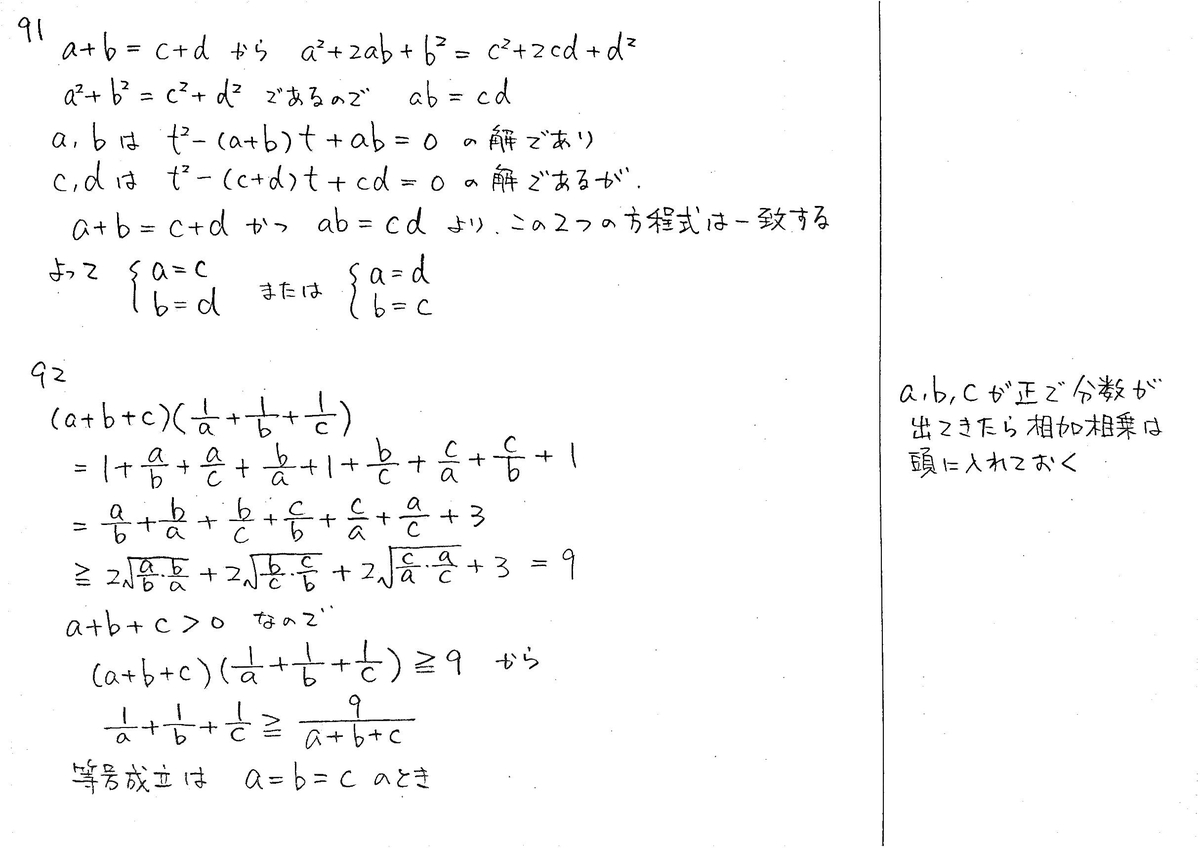 91
a+b=c+d から a²+2ab+b²=c²+2cd+d²
a²+b²=c²+d² であるので ab=cd
a, b は t²-(a+b)t+ab=0 の解であり
c, d は t²-(c+d)t+cd=0 の解であるが、
a+b=c+d かつ ab=cd より、この2つの方程式は一致する
よって { a=c b=d または { a=d b=c
92
(a+b+c)(1/a+1/b+1/c)
=1+a/b+a/c+b/a+1+b/c+c/a+c/b+1
=a/b+b/a+b/c+c/b+c/a+a/c+3
≧2√(a/b・b/a)+2√(b/c・c/b)+2√(c/a・a/c)+3=9
a+b+c>0 なので
(a+b+c)(1/a+1/b+1/c)≧9 から
1/a+1/b+1/c≧9/(a+b+c)
等号成立は a=b=c のとき
a, b, c が正で分数が
出てきたら相加相乗は
頭に入れておく